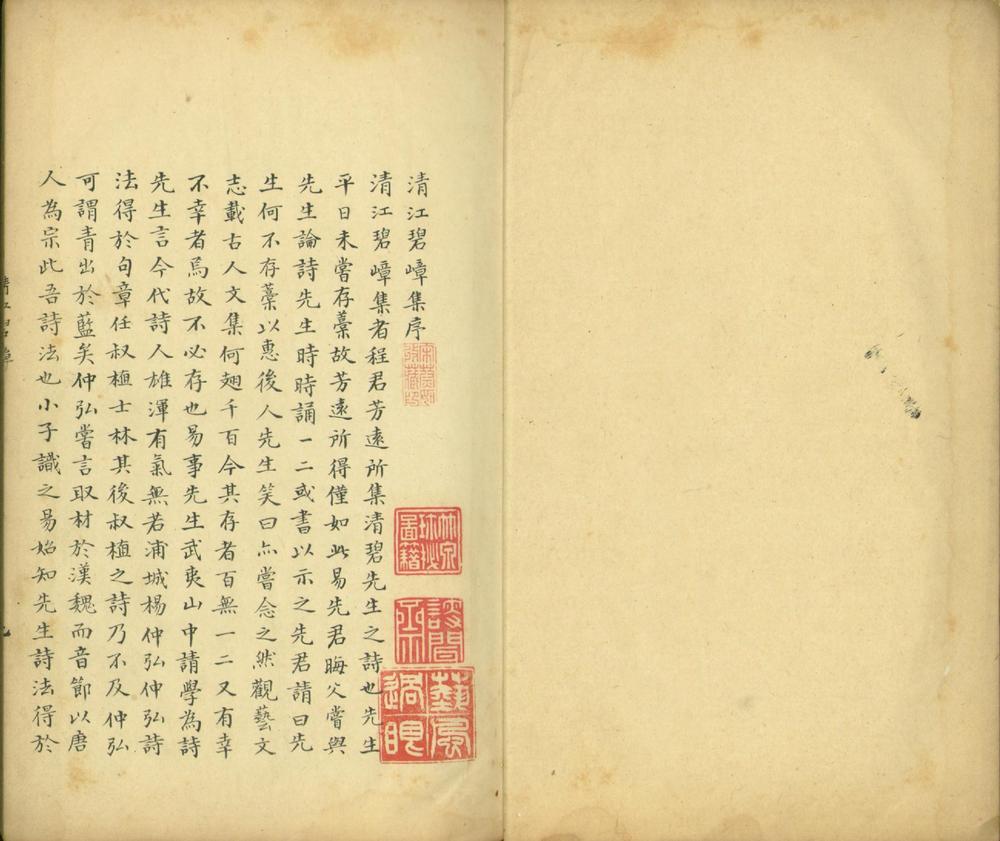 清江碧嶂集序
清江碧嶂集者程君芳遠所集清碧先生之詩也先生
平日未嘗存藁故芳遠所得僅如此易先君晦父嘗與
先生論詩先生時時誦一二或書以示之先君請曰先
生何不存藁以惠後人先生笑曰亦嘗念之然觀藝文
志載古人文集何翅千百今其存者百無一二又有幸
不幸者焉故不必存也易事先生武夷山中請學為詩
先生言今代詩人雄渾有氣無若浦城楊仲弘仲弘詩
法得於句章任叔植士林其後叔植之詩乃不及仲弘
可謂青出於藍矣仲弘嘗言取材於漢魏而音節以唐
人為宗此吾詩法也小子識之易始知先生詩法得於
藝風
過眼